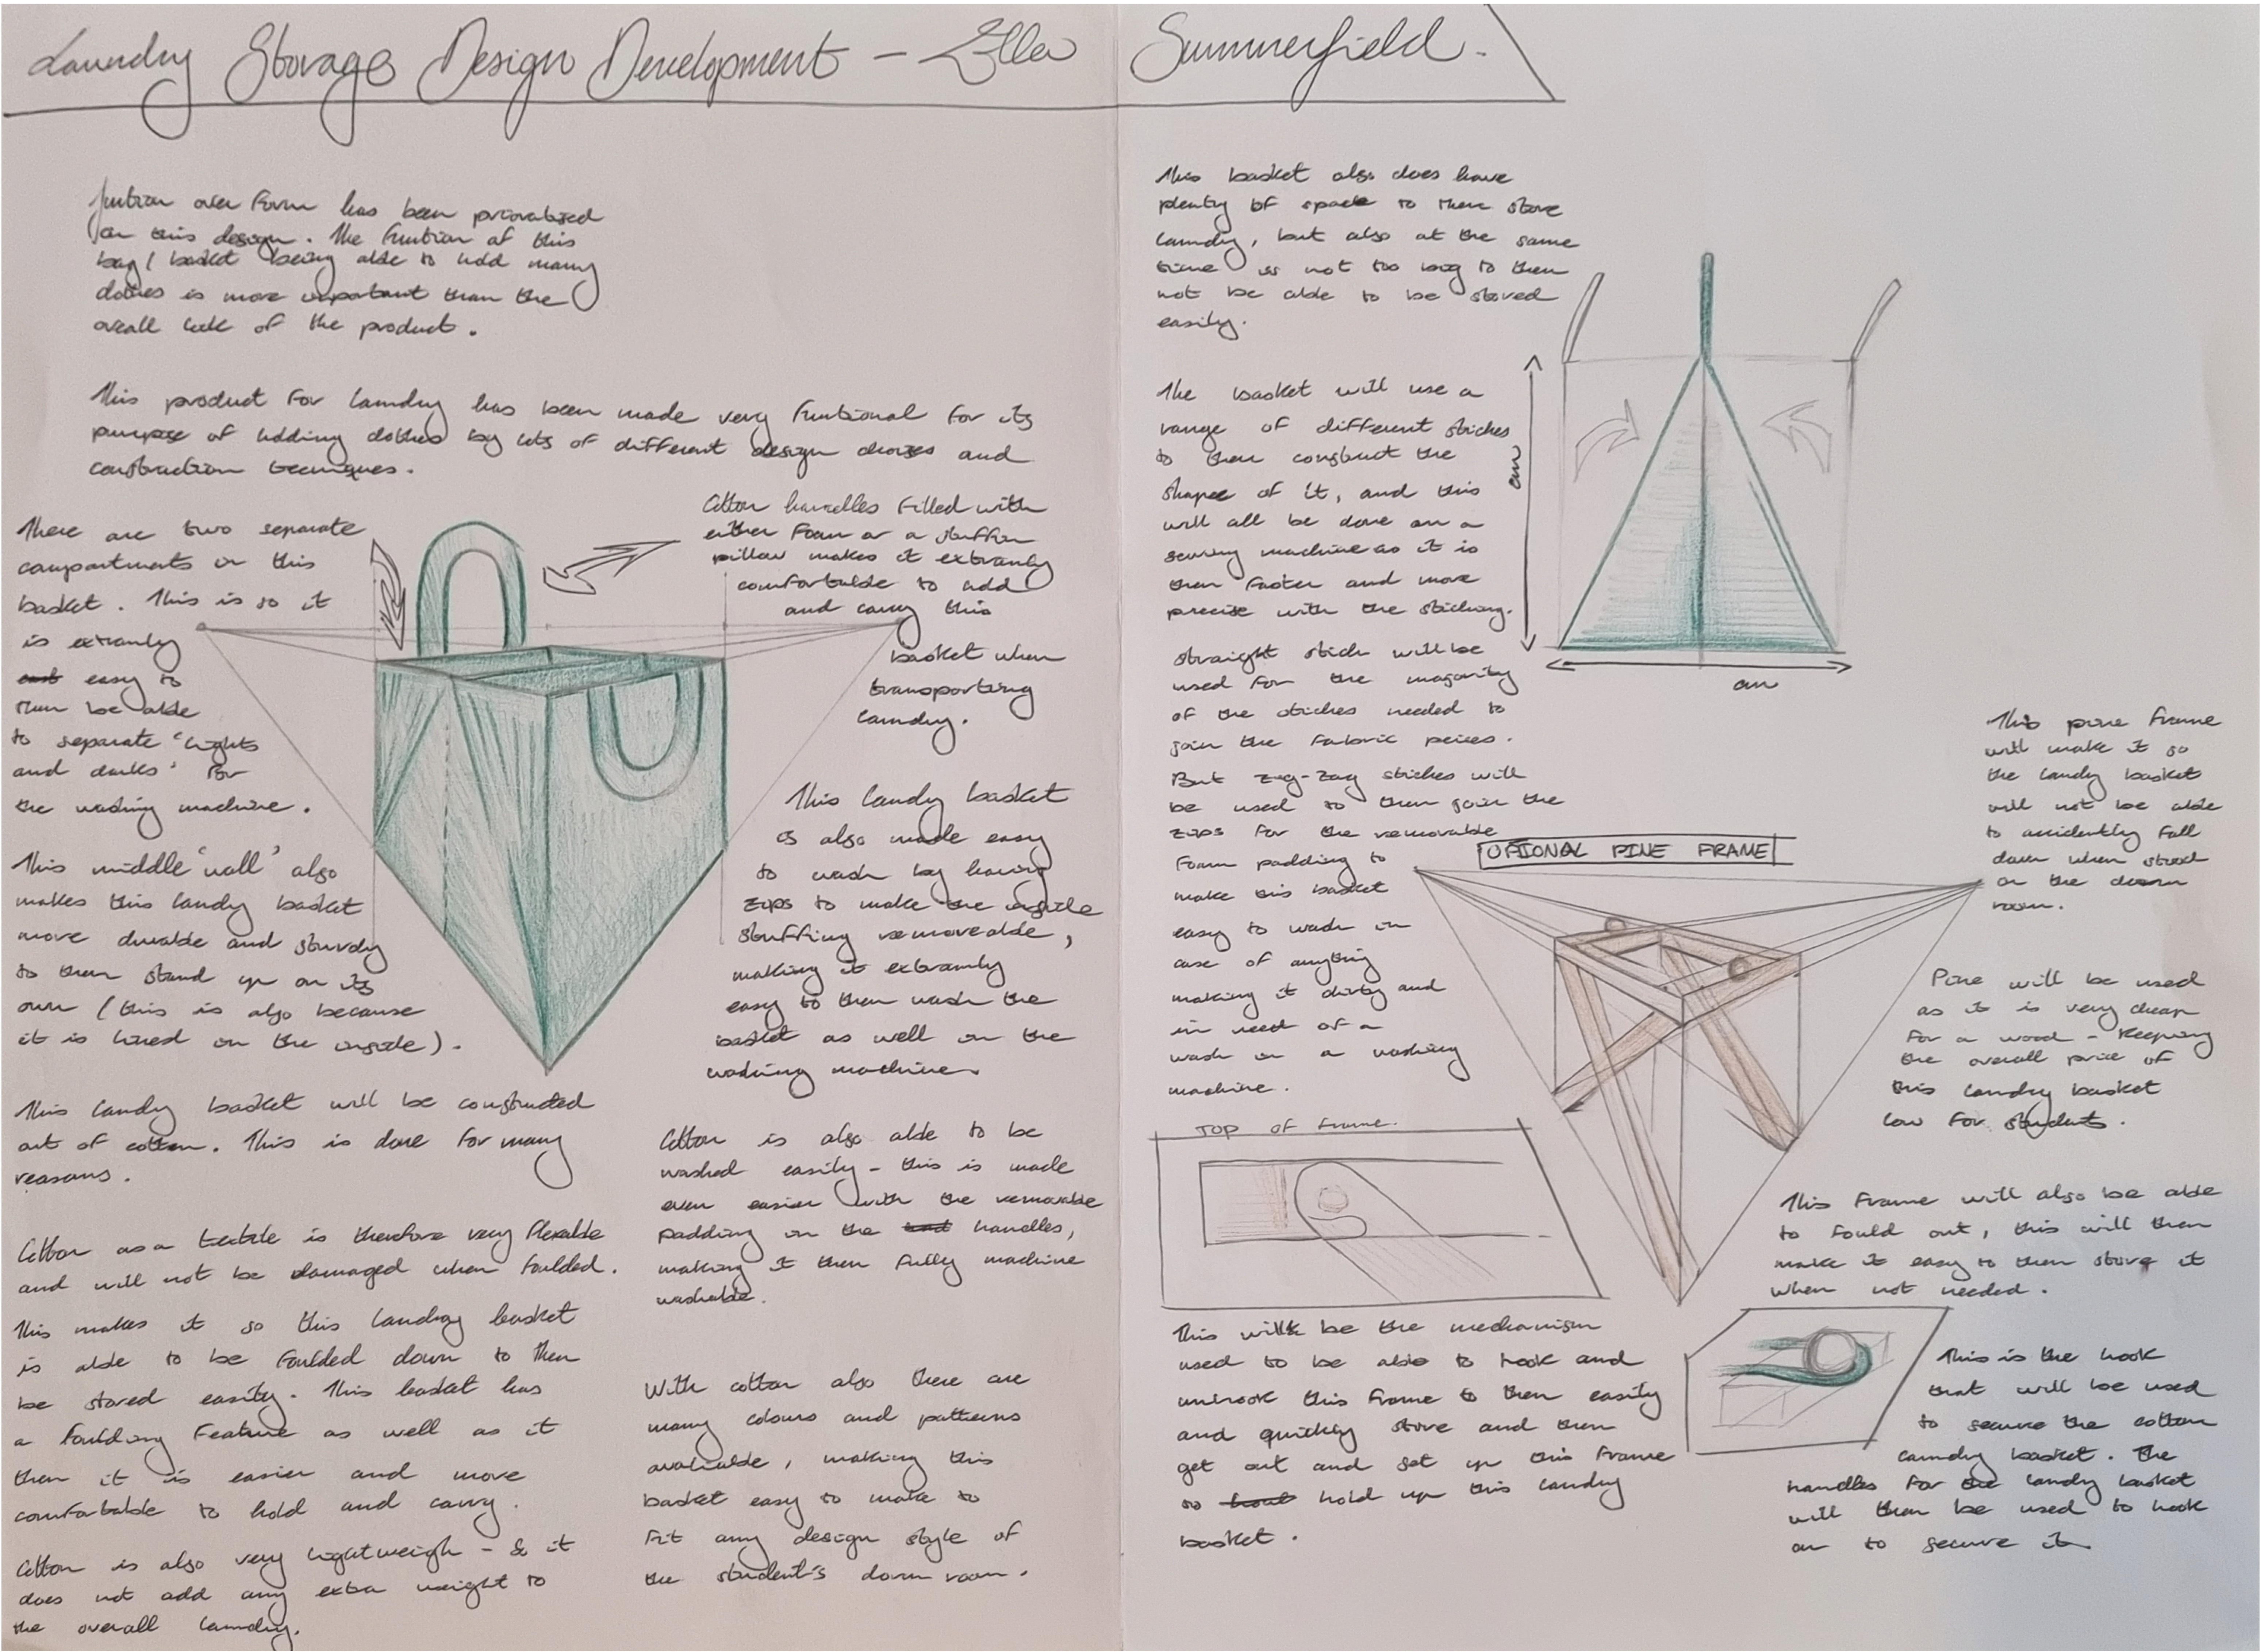 Laundry Storage Design Development - Ella Summerfield.
funtion over Form has been prioratised
for this design. The funtion of this
bag / basket being able to hold many
clothes is more important than the
overall look of the product.
This product for laundry has been made very funtional for its
purpose of holding clothes by lots of different design choises and
constraction tecniques.
There are two separate
compartments in this
basket. This is so it
is extramly
easy to
then be able
to separate 'lights
and darks' for
the washing machine.
This middle 'wall' also
makes this landry basket
more durable and sturdy
to then stand up on its
own (this is also because
it is lined on the inside).
Cotton handles filled with
either foam or a stuffin
pillow makes it extramly
comfortable to hold
and carry this
basket when
transporting
laundry.
This landry basket
is also made easy
to wash by having
zips to make the inside
stuffing removeable,
making it extramly
easy to then wash the
basket as well in the
washing machine.
This landry basket will be constructed
out of cotton. This is done for many
reasons.
Cotton as a textile is therfore very flexable
and will not be damaged when foulded.
This makes it so this laundry basket
is able to be foulded down to then
be stored easily. This basket has
a foulding feature as well as it
then it is easier and more
comfortable to hold and carry.
Cotton is also very lightweigh - & it
does not add any extra weight to
the overall laundry.
Cotton is also able to be
washed easily - this is made
even easier with the removable
padding in the handles,
making it then fully machine
washable.
With cotton also there are
many colours and patterns
available, making this
basket easy to make to
fit any design style of
the student's dorm room.
This basket also does have
plenty of space to then store
laundry, but also at the same
time is not too big to then
not be able to be stored
easily.
The basket will use a
range of different stiches
to then construct the
shape of it, and this
will all be done on a
sewing machine as it is
then faster and more
precise with the stiching.
Straight stich will be
used for the magority
of the stiches needed to
join the fabric peices.
But zig-zag stiches will
be used to then join the
zips for the removable
foam padding to
make this basket
easy to wash in
case of anything
making it dirty and
in need of a
wash in a washing
machine.
cm
cm
OPTIONAL PINE FRAME
This pine frame
will make it so
the landry basket
will not be able
to accidently fall
down when stood
in the dorm
room.
Pine will be used
as it is very cheap
for a wood - keeping
the overall price of
this landry basket
low for students.
This frame will also be able
to fould out, this will then
make it easy to then store it
when not needed.
TOP of frame.
This will be the mechanism
used to be able to hook and
unhook this frame to then easily
and quickly store and then
get out and set up this frame
to hold up this landry
basket.
This is the hook
that will be used
to secure the cotton
laundry basket. The
handles for the landry basket
will then be used to hook
on to secure it